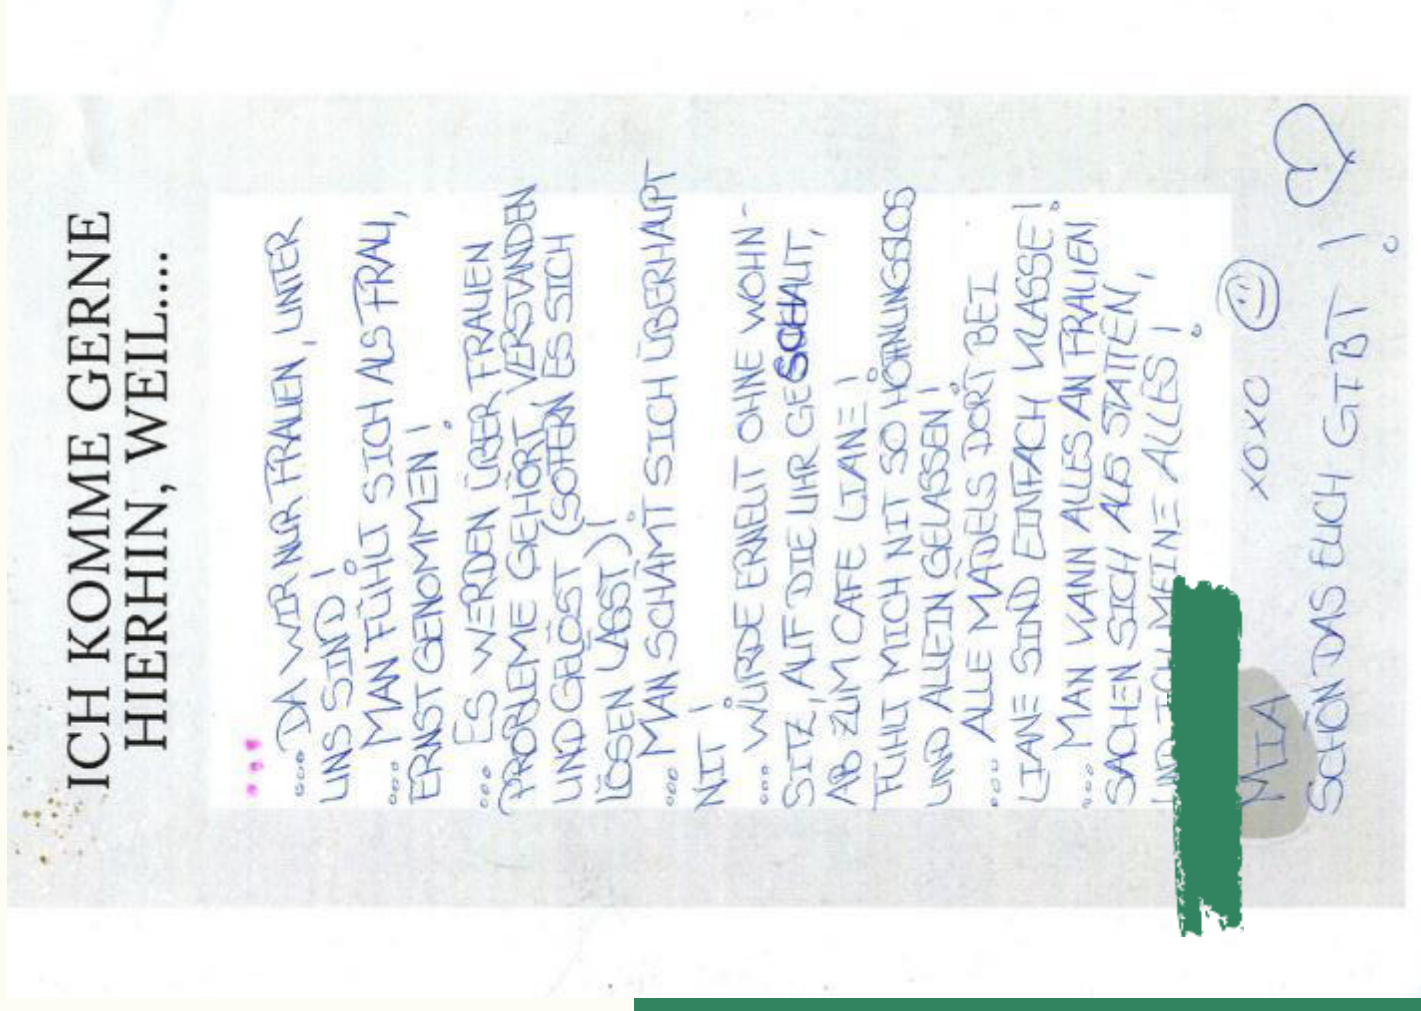 ICH KOMME GERNE
HIERHIN, WEIL....
.... DA WIR NUR FRAUEN, UNTER
UNS SIND!
... MAN FÜHLT SICH ALS FRAU,
ERNST GENOMMEN!
... ES WERDEN ÜBER FRAUEN
PROBLEME GEHÖRT, VERSTANDEN
UND GELÖST (SOFERN ES SICH
LÖSEN LÄSST)!
... MAN SCHÄMT SICH ÜBERHAUPT
NIT!
... WÜRDE ERNEUT OHNE WOHN-
SITZ, AUF DIE UHR GESCHAUT,
AB ZUM CAFE LIANE!
FÜHLT MICH NIT SO HOFFNUNGSLOS
UND ALLEIN GELASSEN!
... ALLE MÄDELS DORT BEI
LIANE SIND EINFACH KLASSE!
... MAN KANN ALLES AN FRAUEN
SACHEN SICH AUS STATTEN,
UND ICH MEINE ALLES!
MIA XOXO
SCHÖN DAS EUCH GIBT!